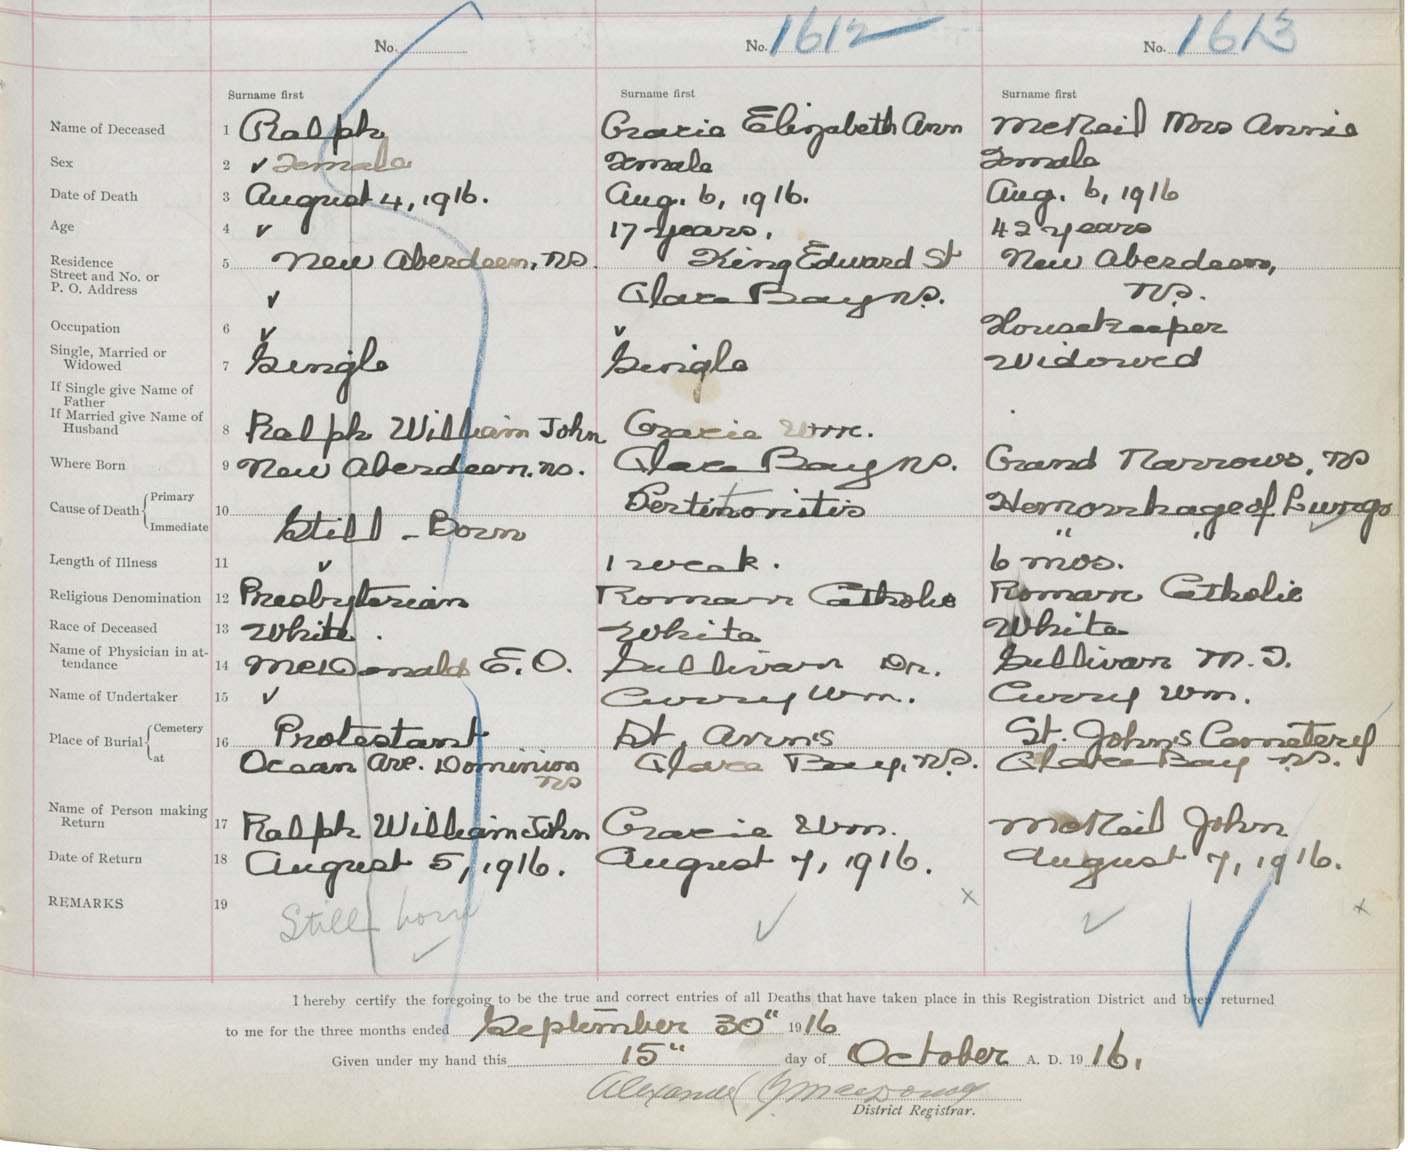 No. No. 1612 No. 1613
Surname first Surname first Surname first
Name of Deceased 1 Ralph Gracie Elizabeth Ann McNeil Mrs Annie
Sex 2 ✓ Female Female Female
Date of Death 3 August 4, 1916. Aug. 6, 1916. Aug. 6, 1916
Age 4 ✓ 17 years. 42 years
Residence
Street and No. or
P. O. Address
5 New Aberdeen, NS. King Edward St New Aberdeen,
✓ Glace Bay NS. NS.
Occupation 6 ✓ ✓ Housekeeper
Single, Married or
Widowed
7 Single Single Widowed
If Single give Name of
Father
If Married give Name of
Husband
8 Ralph William John Gracie Wm.
Where Born 9 New Aberdeen. NS. Glace Bay NS. Grand Narrows, NS
Cause of Death { Primary
Immediate
10 Pertinonitis Hemorrhage of Lungs
Still - Born " "
Length of Illness 11 ✓ 1 week. 6 mos.
Religious Denomination 12 Presbyterian Roman Catholic Roman Catholic
Race of Deceased 13 White. White White
Name of Physician in at-
tendance
14 McDonald E. O. Sullivan Dr. Sullivan M. T.
Name of Undertaker 15 ✓ Curry Wm. Curry Wm.
Place of Burial { Cemetery
at
16 Protestant St. Ann's St. John's Cemetery
Ocean Ave. Dominion NS Glace Bay, NS. Glace Bay NS.
Name of Person making
Return
17 Ralph William John Gracie Wm. McNeil John
Date of Return 18 August 5, 1916. August 7, 1916. August 7, 1916.
REMARKS 19 Still born ✓ ✓ x ✓ x
I hereby certify the foregoing to be the true and correct entries of all Deaths that have taken place in this Registration District and been returned
to me for the three months ended September 30" 1916
Given under my hand this 15" day of October A. D. 1916.
Alexander
District Registrar.